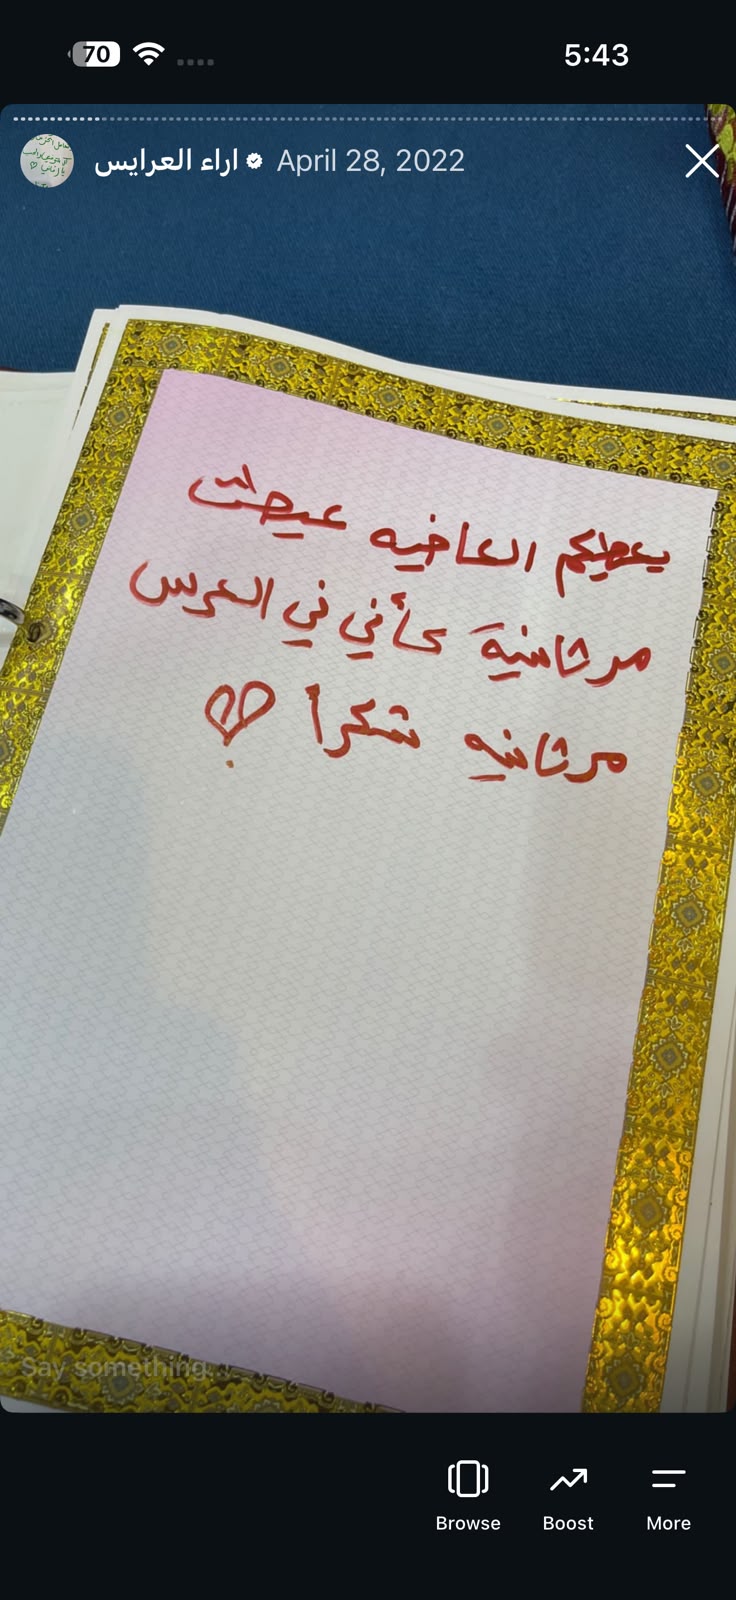 70
5:43
اراء العرايس April 28, 2022
يعطيكم العافيه عيشت
مره ثانية كأني في العرس
مره ثانيه شكراً
Say something...
Browse Boost More